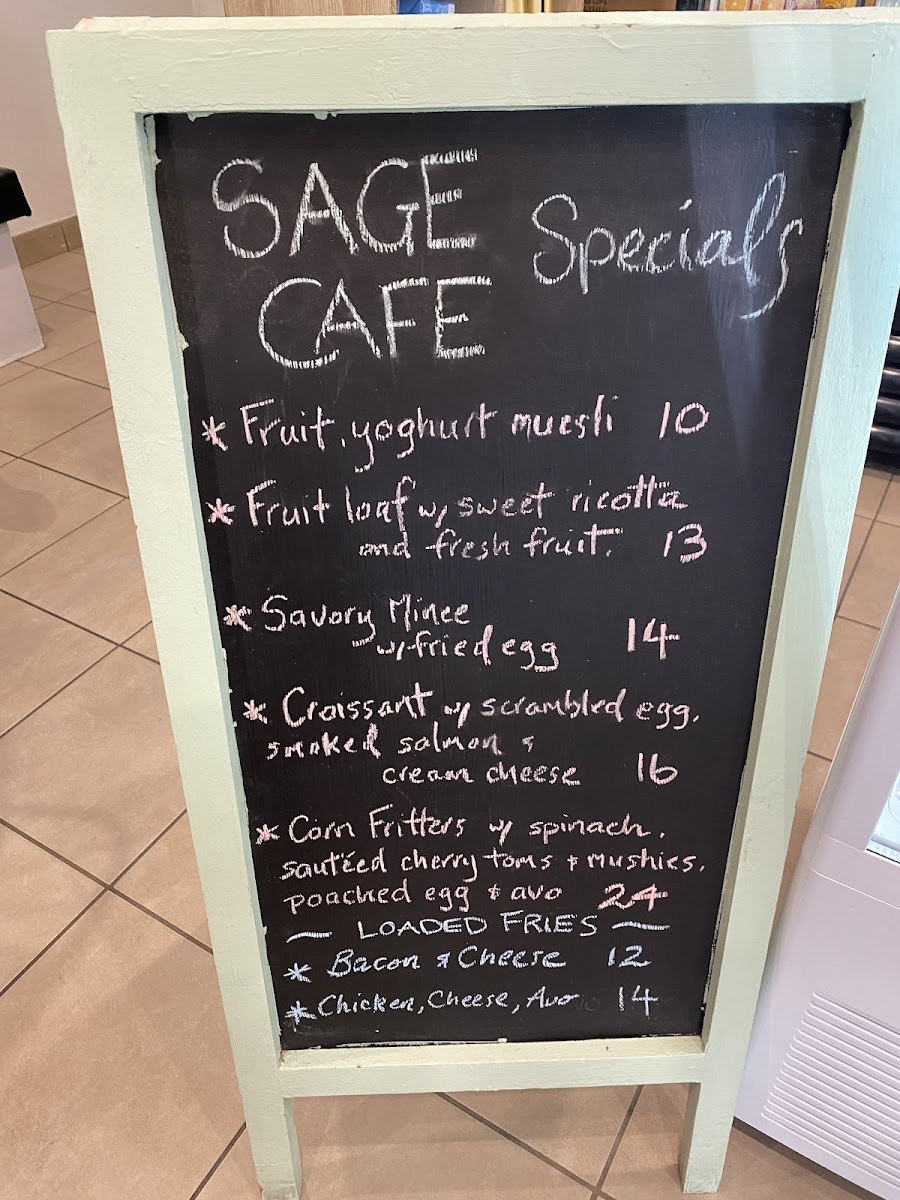 SAGE
CAFE
Specials
* Fruit, yoghurt muesli 10
* Fruit loaf w/ sweet ricotta
and fresh fruit. 13
* Savory Mince
w/ fried egg 14
* Croissant w/ scrambled egg,
smoked salmon &
cream cheese 16
* Corn Fritters w/ spinach,
sautéed cherry toms & mushies,
poached egg & avo 24
— LOADED FRIES —
* Bacon & Cheese 12
* Chicken, Cheese, Avo 14